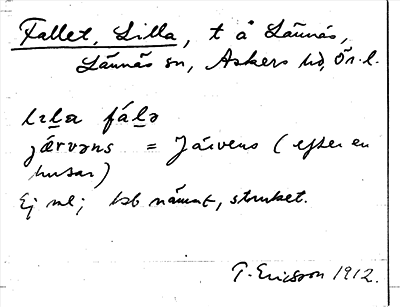 Fallet, Lilla, t å Lännäs,
Lännäs sn, Askers hd, Ör. l.
lɪla fálə
jǽrvəns = Järvens (efter en
husar)
Ej ml; bb nämnt, struket.
T. Ericsson 1912.